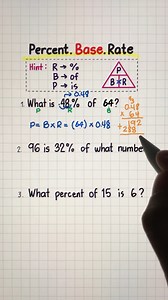 Percent. Base. Rate
Hint: R → %
B → of
P → is
P
B R
→ 0.48
1. What is 48% of 64?
P R B
P = B × R = (64) × 0.48
3
0.48
× 64
192
+ 288
2. 96 is 32% of what
3. What percent of 15 is 6?